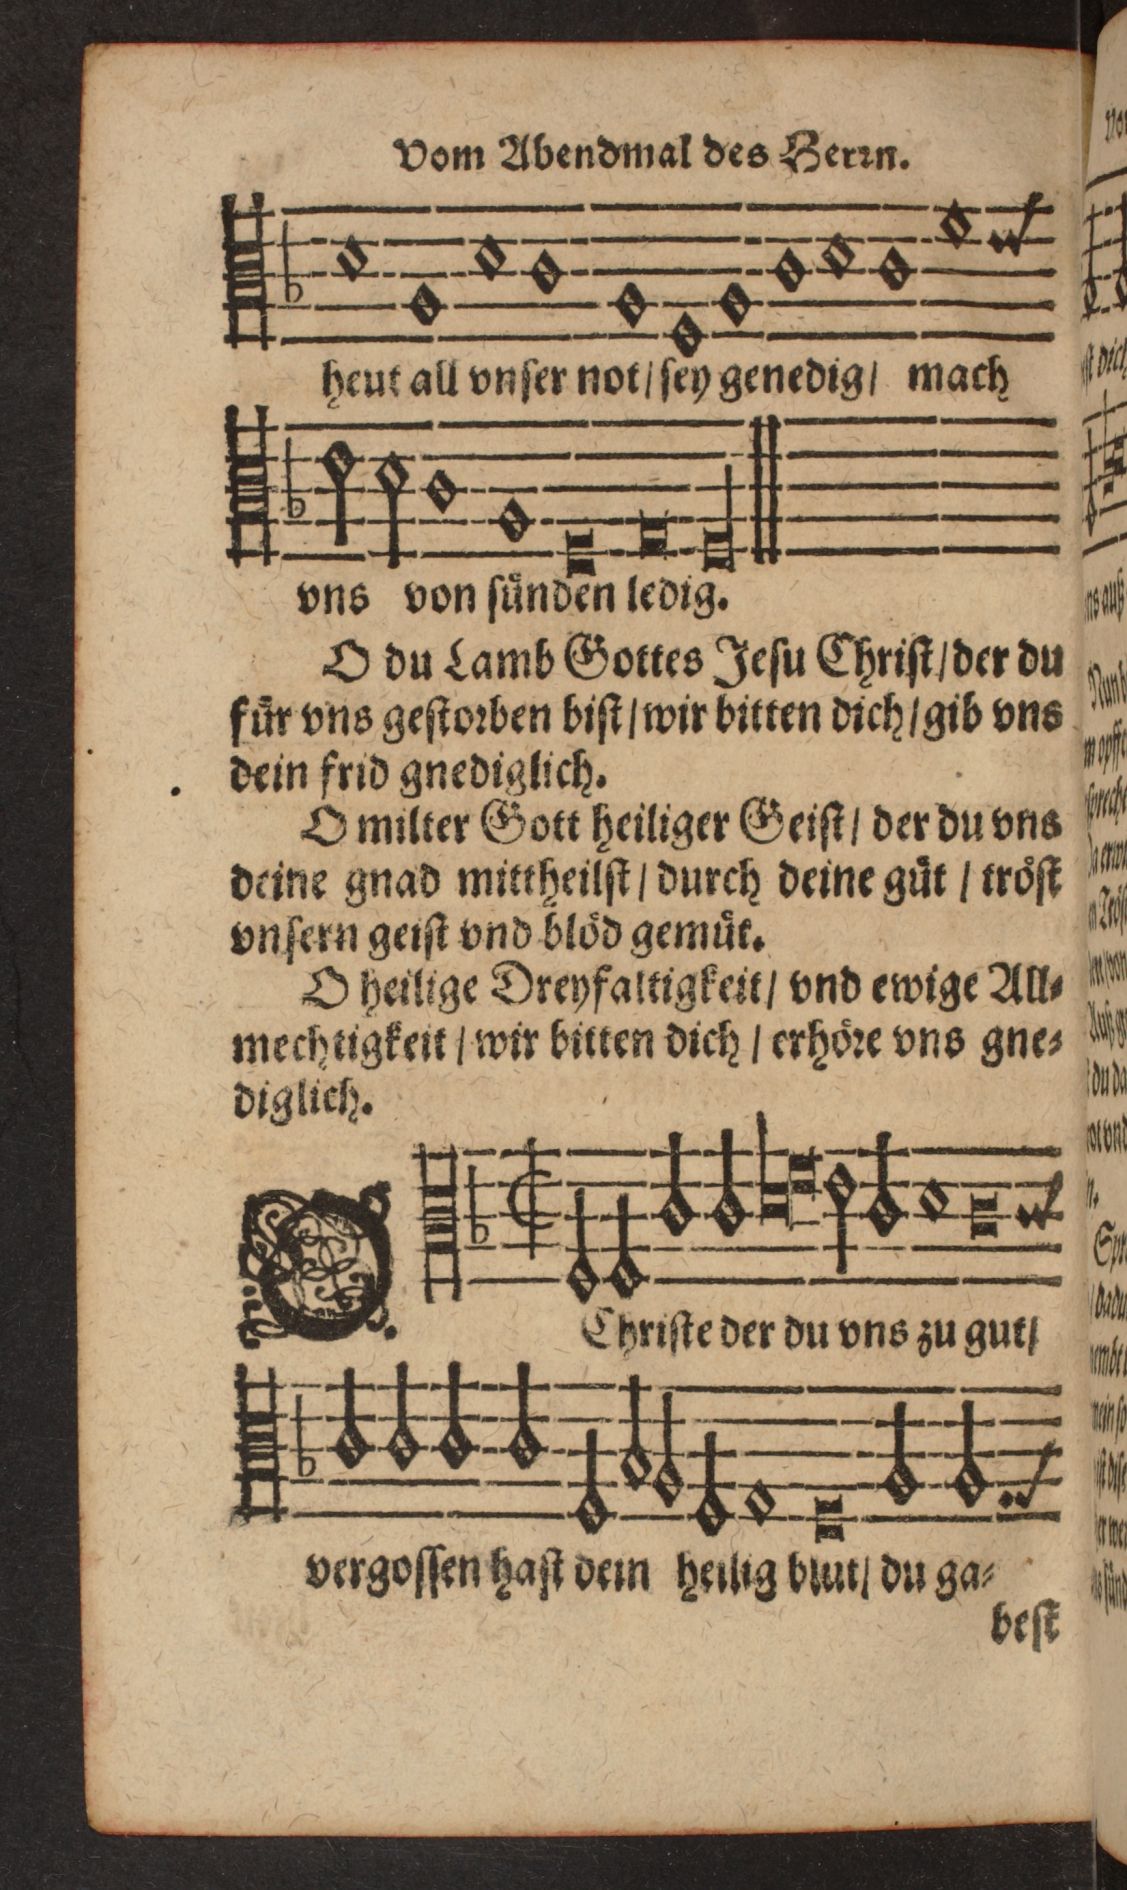 Vom Abendmal des Herrn.
heut all vnser not/ sey genedig/ mach
vns von sünden ledig.
O du Lamb Gottes Jesu Christ/ der du
für vns gestorben bist/ wir bitten dich/ gib vns
dein frid gnediglich.
O milter Gott heiliger Geist/ der du vns
deine gnad mittheilst/ durch deine güt / tröst
vnsern geist vnd blöd gemüt.
O heilige Dreyfaltigkeit/ vnd ewige All-
mechtigkeit/ wir bitten dich / erhöre vns gne-
diglich.
O Christe der du vns zu gut/
vergossen hast dein heilig blut/ du ga-
best